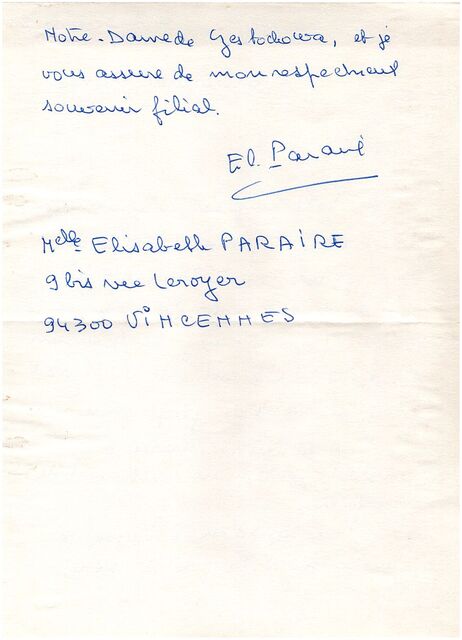 Notre-Dame de Czestochowa, et je
vous assure de mon respectueux
souvenir filial.
El. Paraire
Melle Elisabeth PARAIRE
9 bis rue Leroyer
94300 VINCENNES